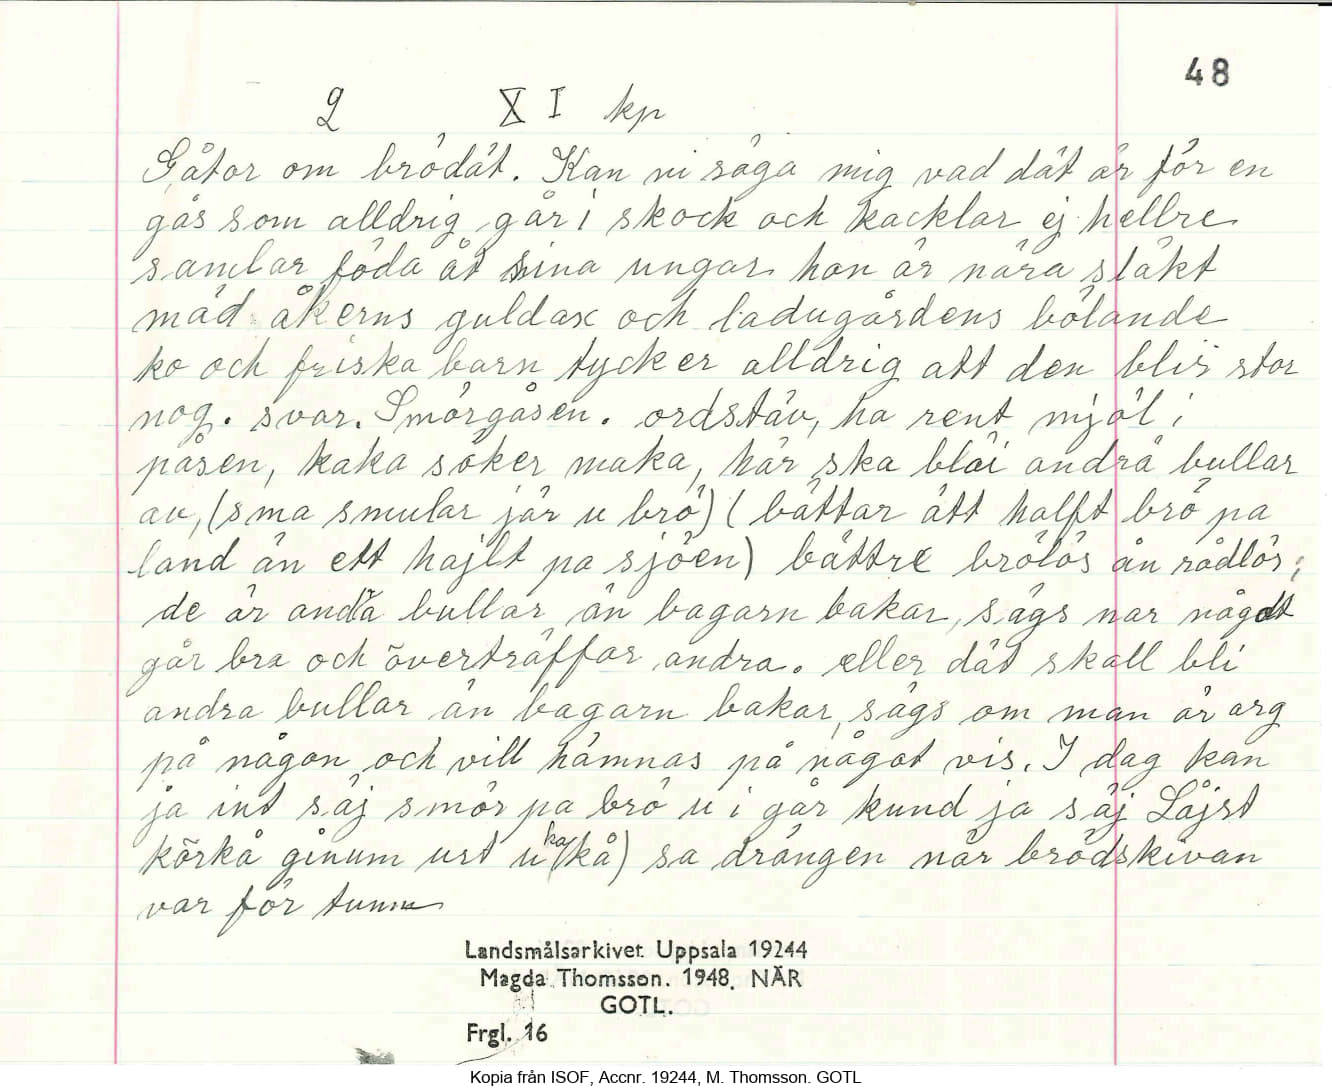 48
2 XI kp
Gåtor om brödät. Kan ni säga mig vad dät är för en
gås som alldrig går i skock och kacklar ej hellre
samlar föda åt sina ungar hon är nära släkt
mäd åkerns guldax och ladugårdens bölande
ko och friska barn tycker alldrig att den blir stor
nog. svar. Smörgåsen. ordstäv, ha rent mjöl i
påsen, kaka söker maka, här ska bläi andrå bullar
av, (sma smular jär u brö) (bättar ätt halft brö pa
land än ett hajlt pa sjöen) bättre brölös än rådlös,
de är andra bullar än bagarn bakar, sägs nar något
går bra och överträffar andra. eller dät skall bli
andra bullar än bagarn bakar, sägs om man är arg
på någon och vill hämnas på något vis. I dag kan
ja int säj smör pa brö u i går kund ja säj Låjst
körkå ginum urt u ka/kå) sa drängen när brödskivan
var för tunn
Landsmålsarkivet Uppsala 19244
Magda Thomsson. 1948. NÄR
GOTL.
Frgl. 16
Kopia från ISOF, Accnr. 19244, M. Thomsson. GOTL